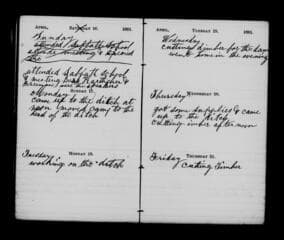 APRIL, SATURDAY 16. 1891.
Sunday
attended Sabbath School
attended Sabbath School
meeting
were the speakers
SUNDAY 17.
Monday
came up to the ditch at
noon moved camp to the
head of the ditch
MONDAY 18.
Tuesday
working on the ditch
APRIL, TUESDAY 19. 1891.
Wednesday
cutting timber for the dam
went home in the evening
WEDNESDAY 20.
Thursday
got some supplies & came
up to the ditch
cutting timber afternoon
THURSDAY 21.
Friday
Cutting Timber